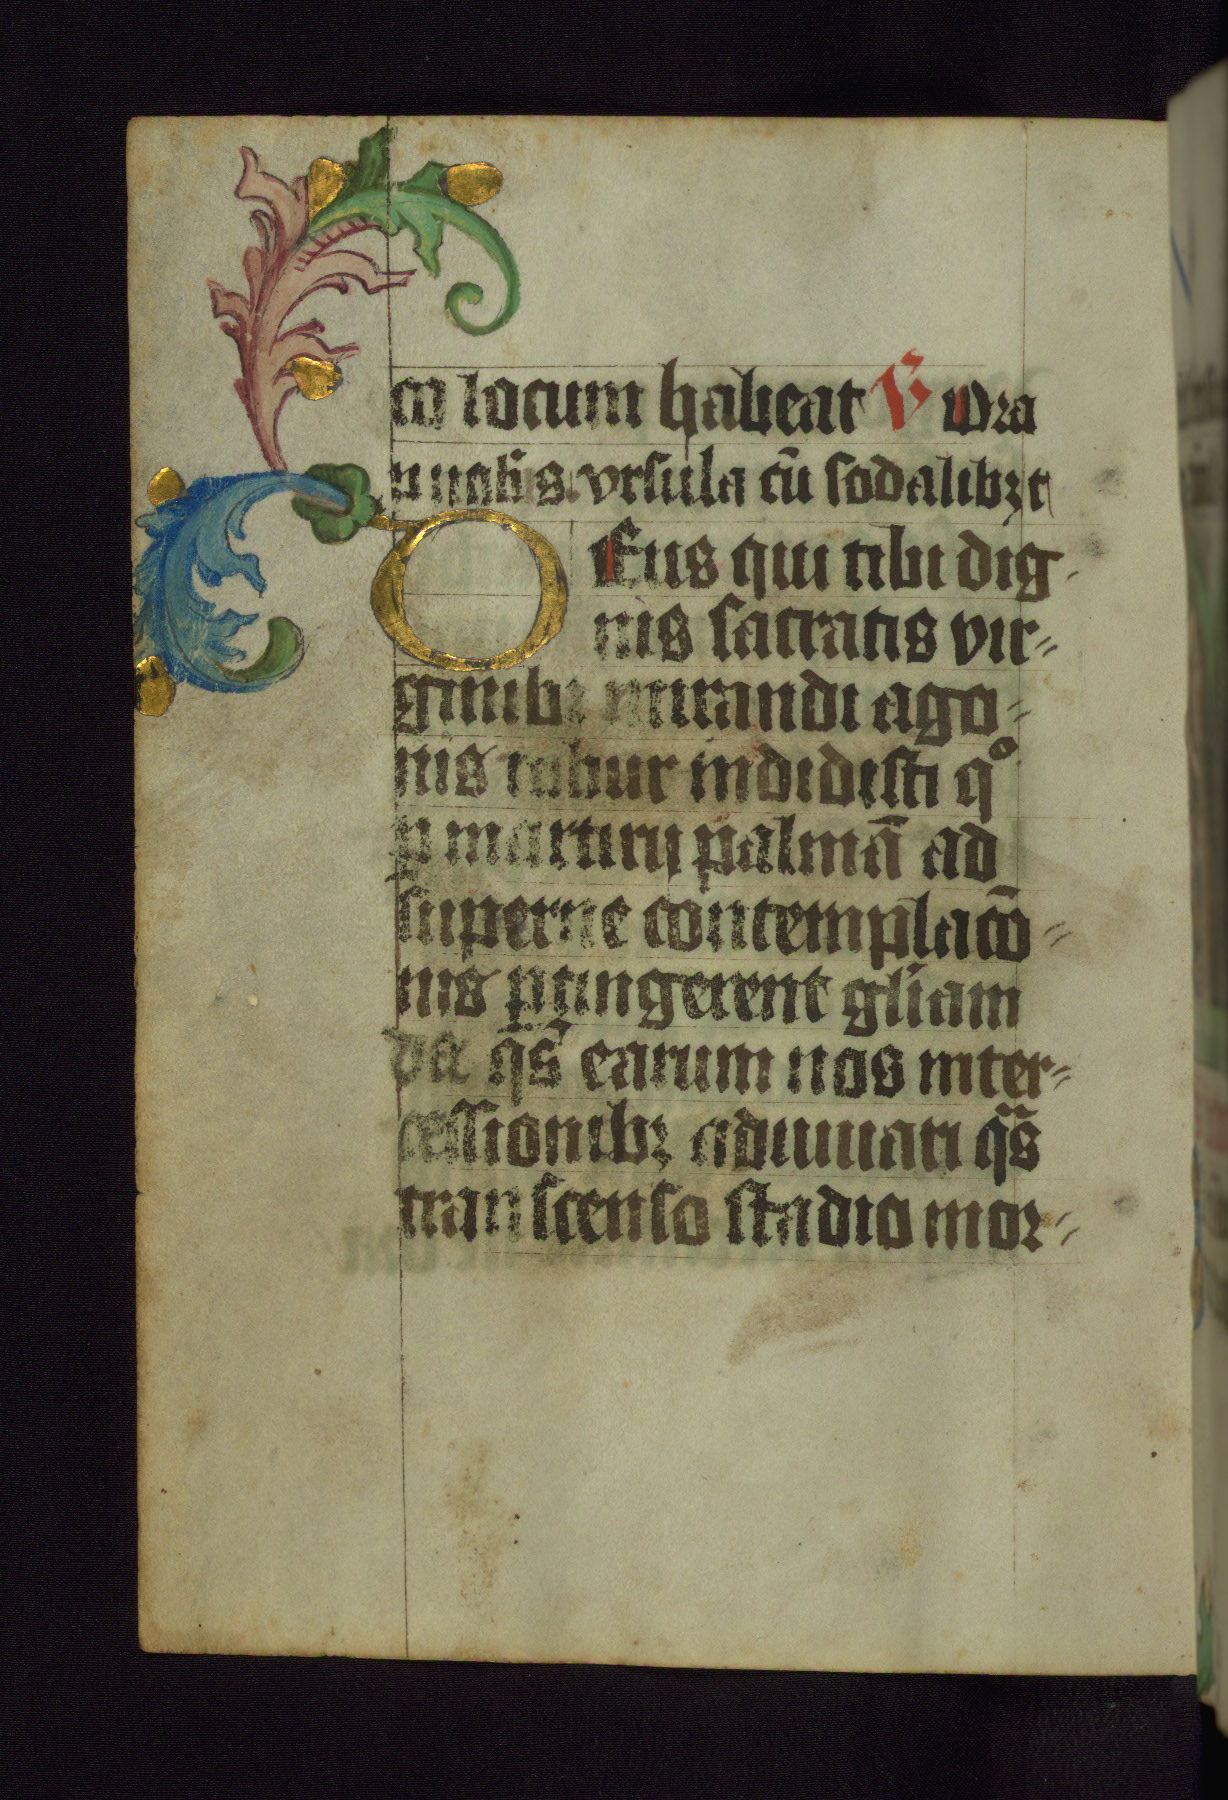 co locum habeat V̄ Ora
p nob̄is vrsula cū sodalibꝫ t
OEus qui tibi dig-
nis sacratis vir=
ginibꝫ mirandi ago=
nis robur indidisti qͦ
ꝑ martirij palmā ad
superne contemplacō=
nis ꝑtingerent gl̄iam
da q̄s earum nos inter=
cessionibꝫ adiuuari q̄s
transcenso stadio mor=